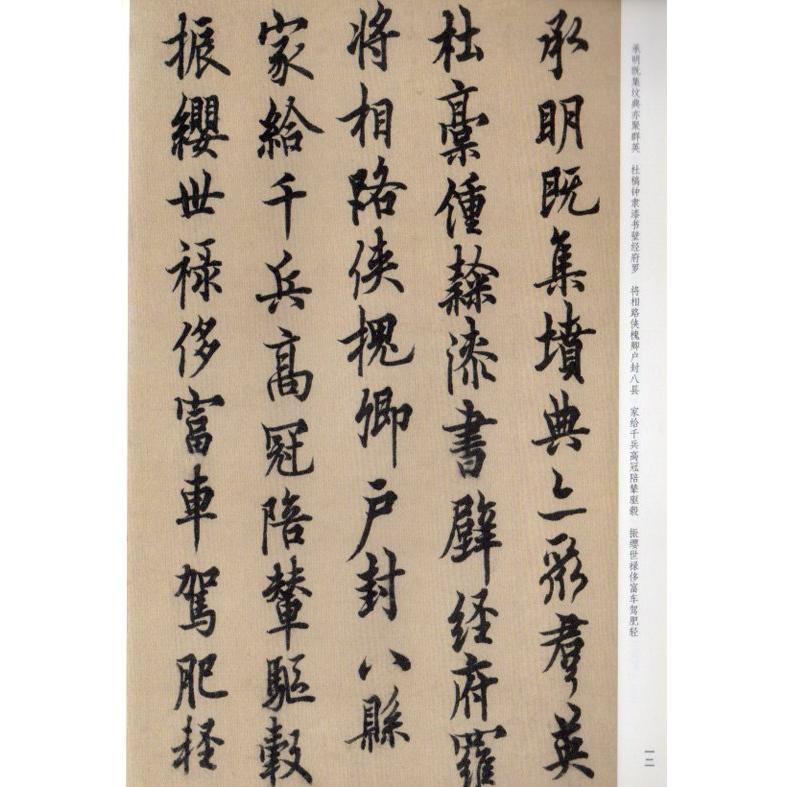 承明既集坟典亦聚群英 杜稿钟隶漆书壁经府罗 将相路侠槐卿户封八县 家给千兵高冠陪辇驱毂 振缨世禄侈富车驾肥轻
一二
承明既集墳典亦聚羣英
杜稾鍾隸漆書壁经府羅
将相路侠槐卿户封八縣
家給千兵高冠陪輦驅轂
振纓世禄侈富車駕肥軽